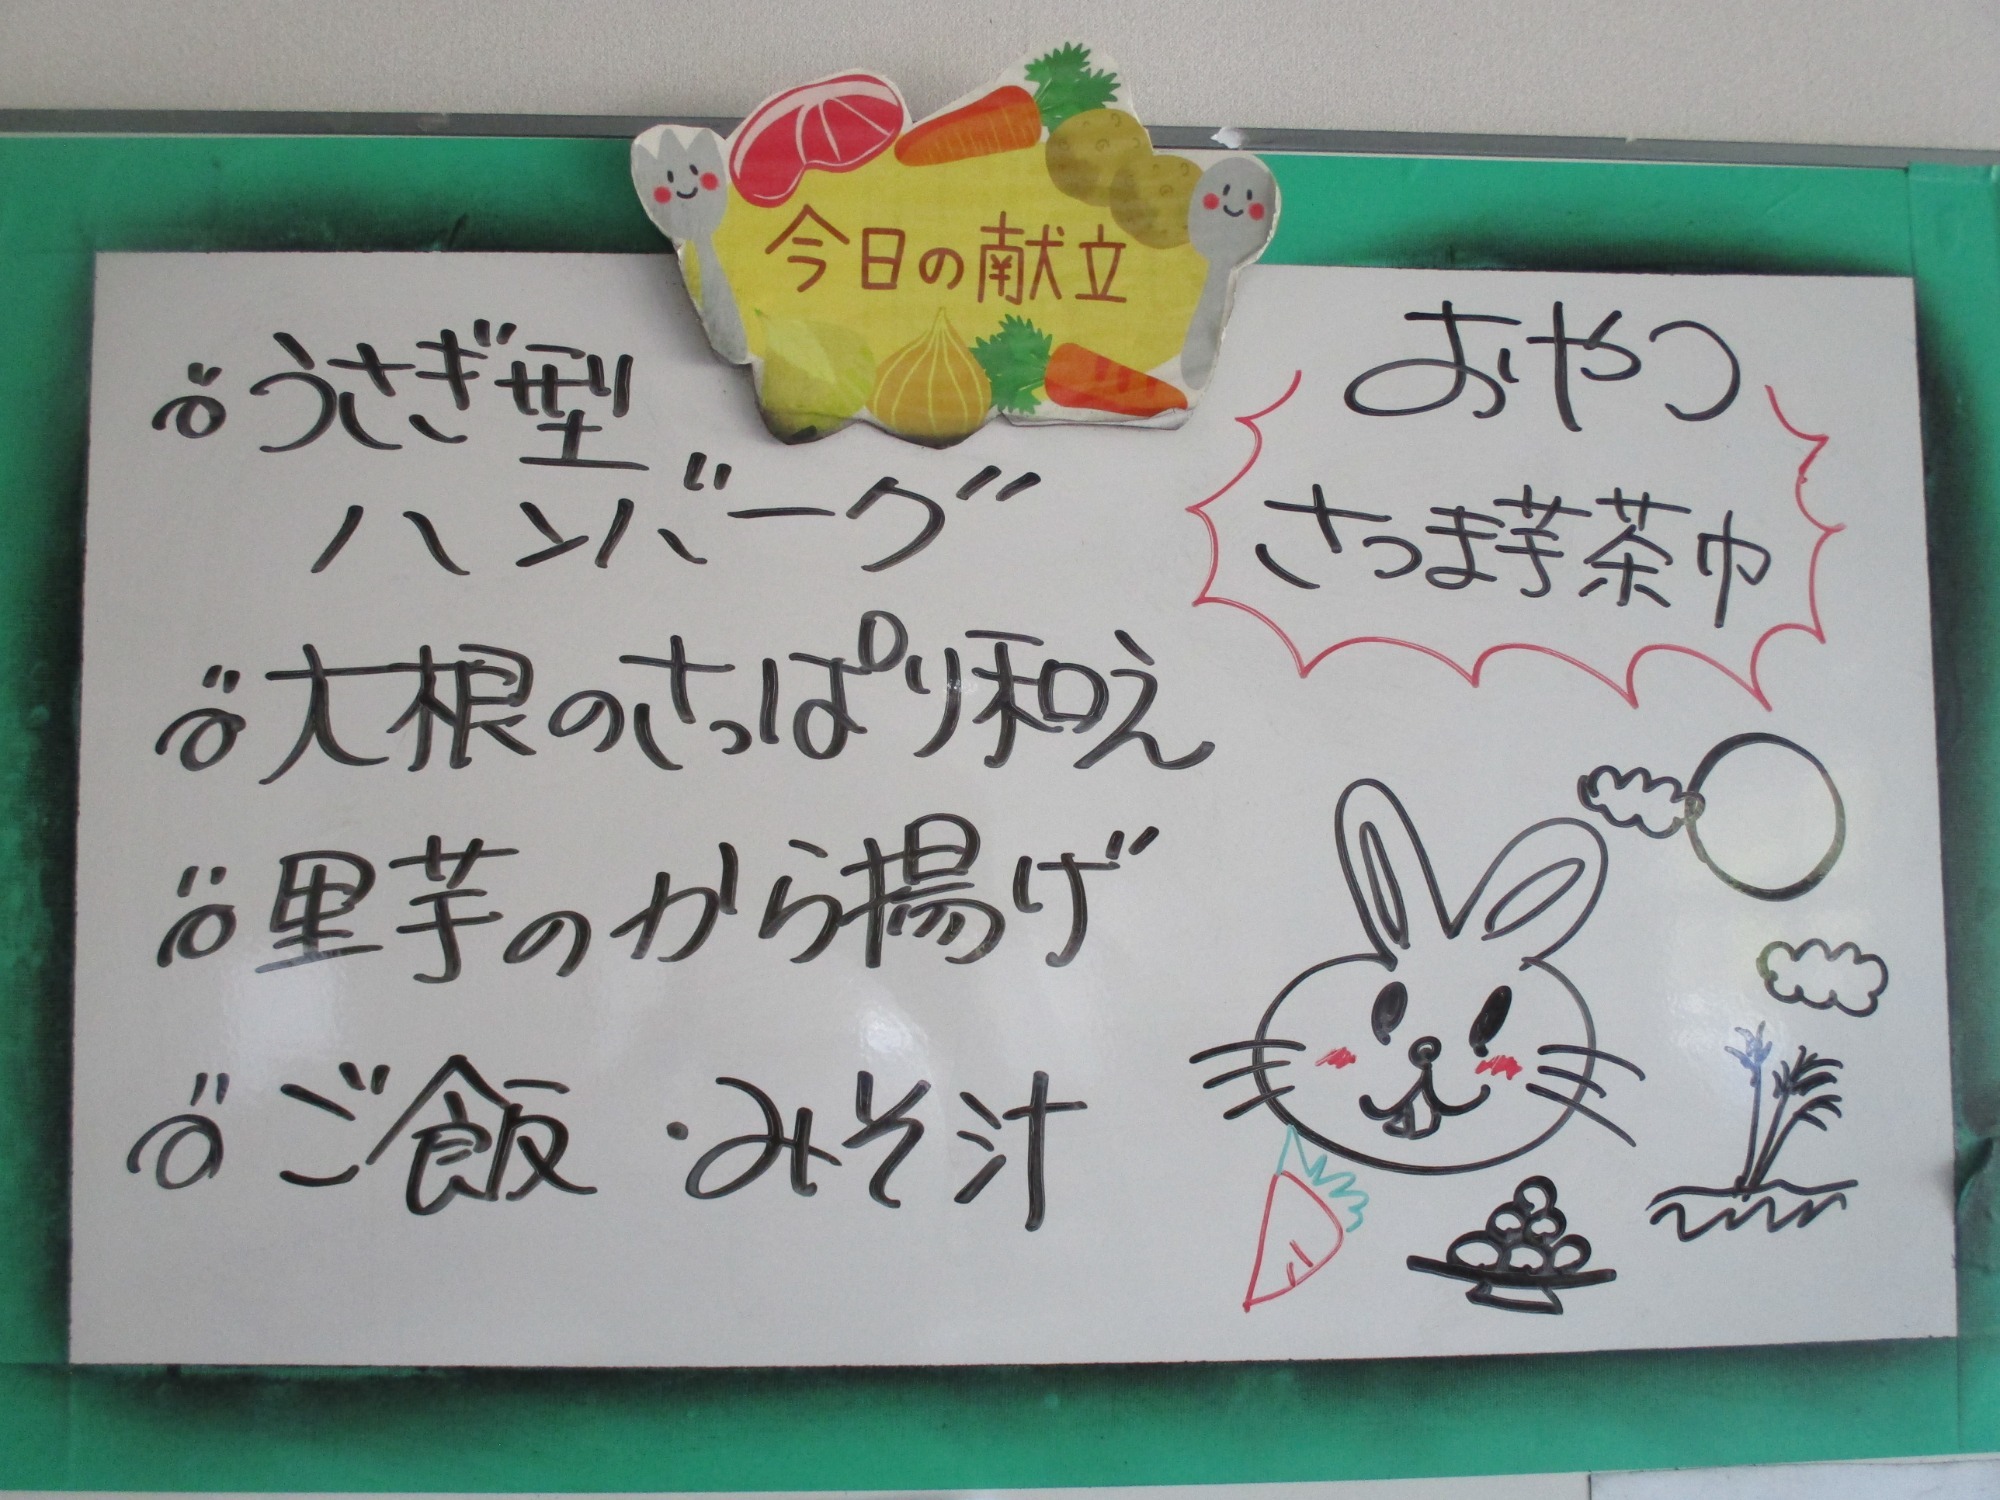 今日の献立
うさぎ型
ハンバーグ
大根のさっぱり和え
里芋のから揚げ
ご飯・みそ汁
おやつ
さつま芋茶巾